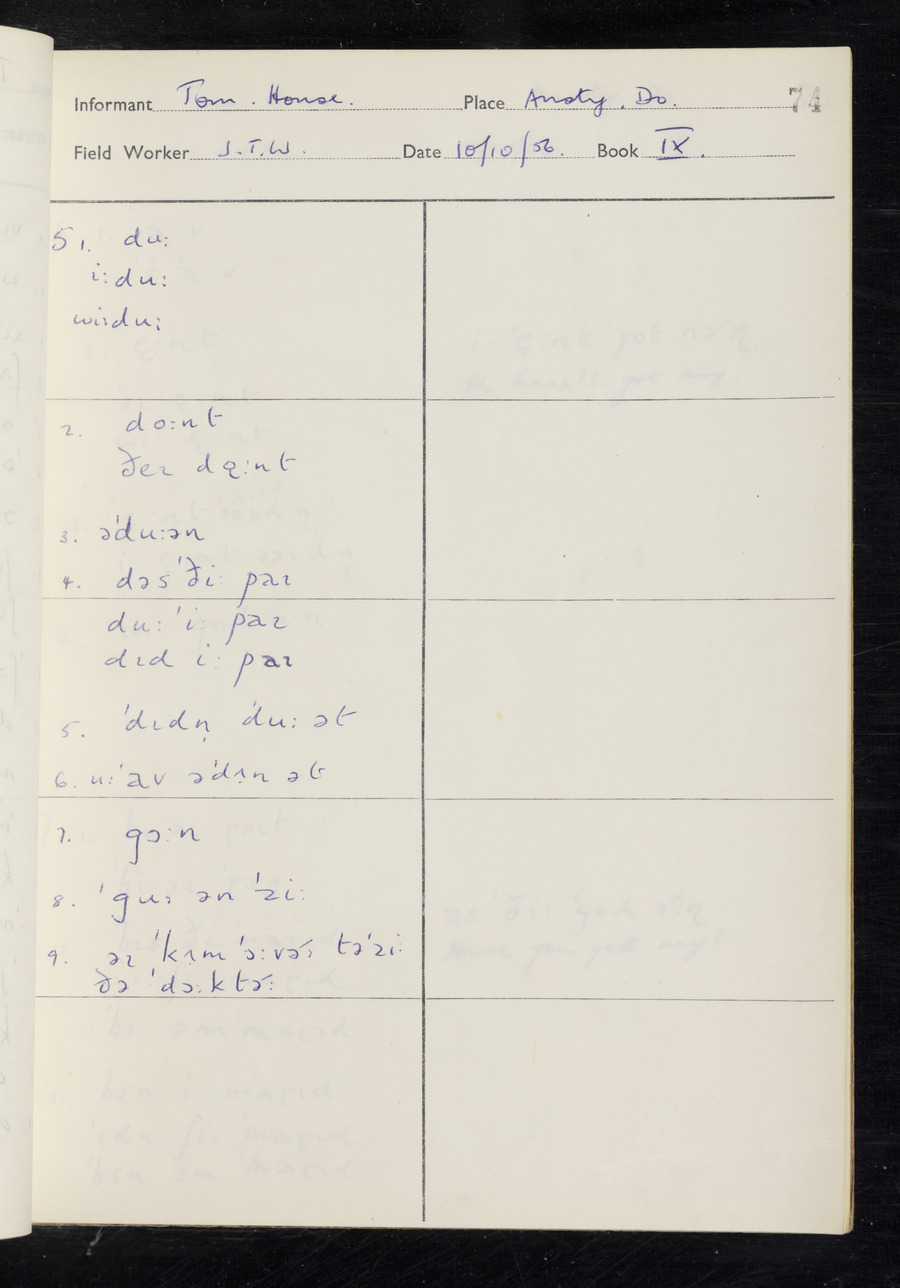 Informant Tom. House. Place Ansty. Do. 74
Field Worker J.T.W. Date 10/10/56. Book IX.
5 1. duː
iːduː
wiːduː
2. doːnt
ðeɪ dęːnt
3. əˈduːən
4. dəsˈðiː paɪ
duːˈiː paɪ
dɪd iː paɪ
5. ˈdɪdn̩ ˈduː ət
6. uːˈav əˈdʌn ət
7. gɔːn
8. ˈguː ən ˈziː
9. əɪ ˈkʌm ˈɔːvəɾ təˈziː
ðə ˈdɔːktəɾː